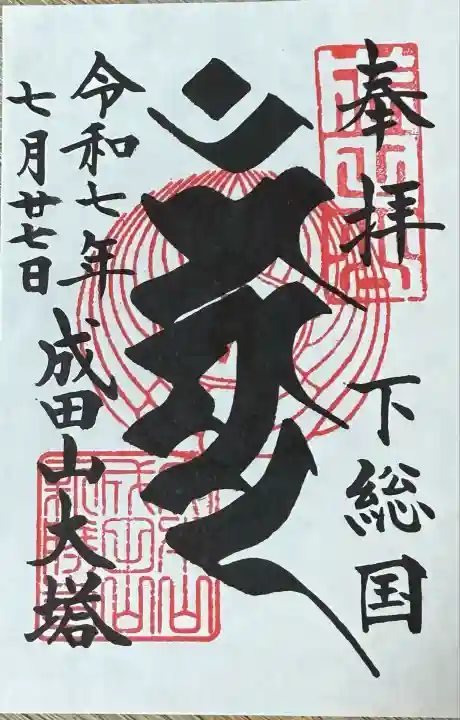 奉拝
下総国
令和七年
七月廿七日
成田山大塔